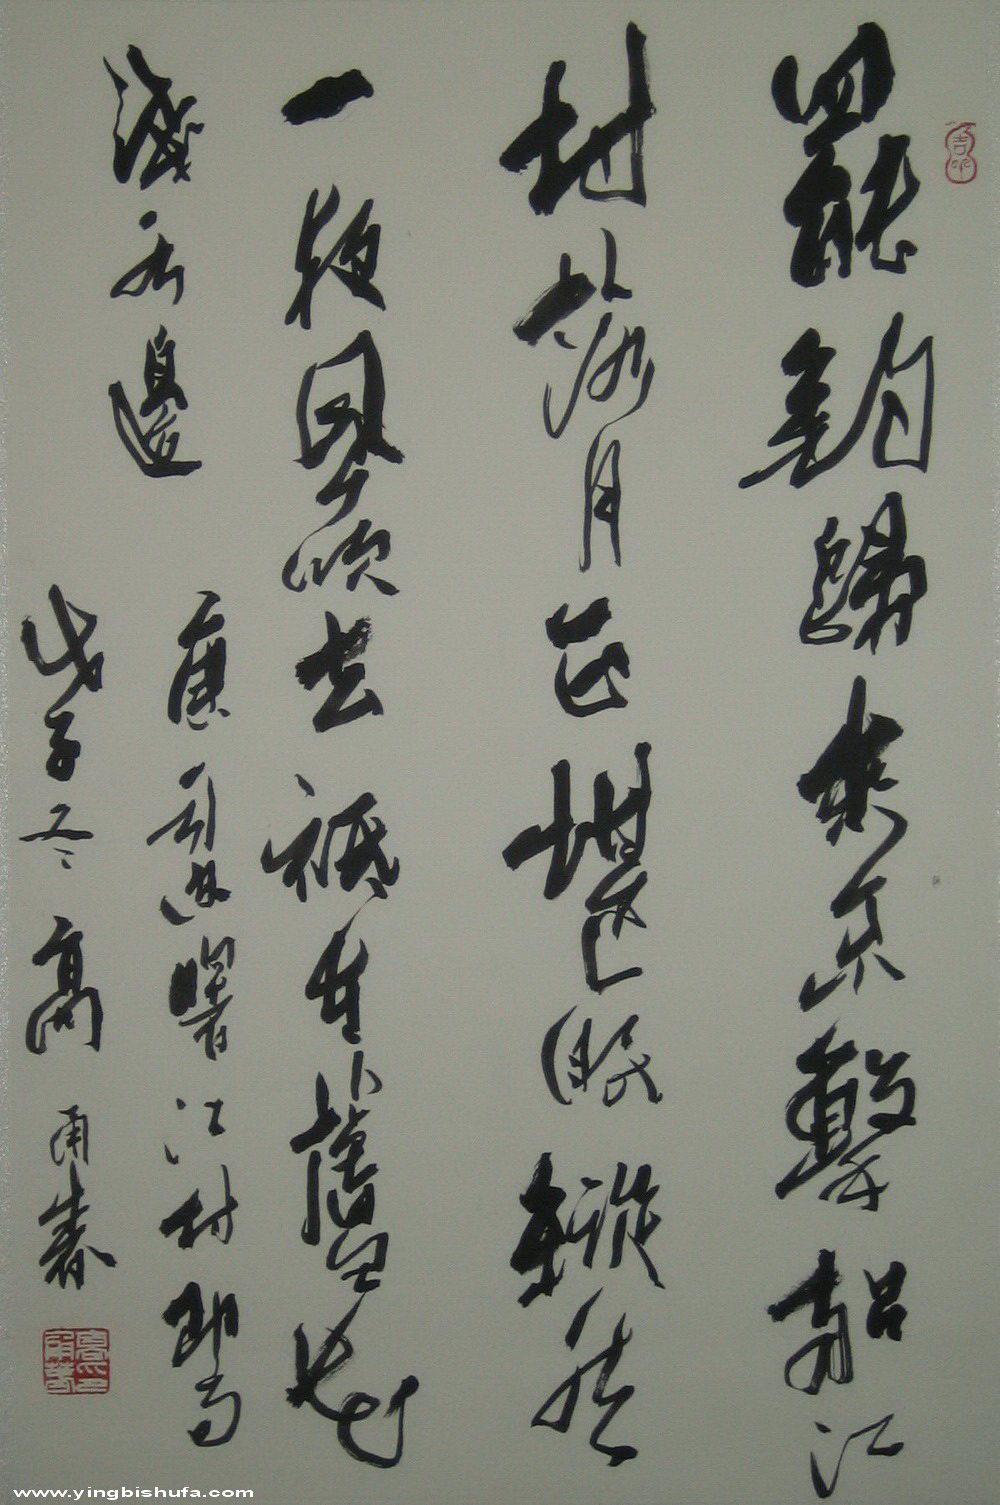 罷釣歸來不繫船江
村落月正堪眠縱然
一夜風吹去祗在蘆花
淺水邊
唐司空曙江村即事
戊子冬高
www.yingbishufa.com